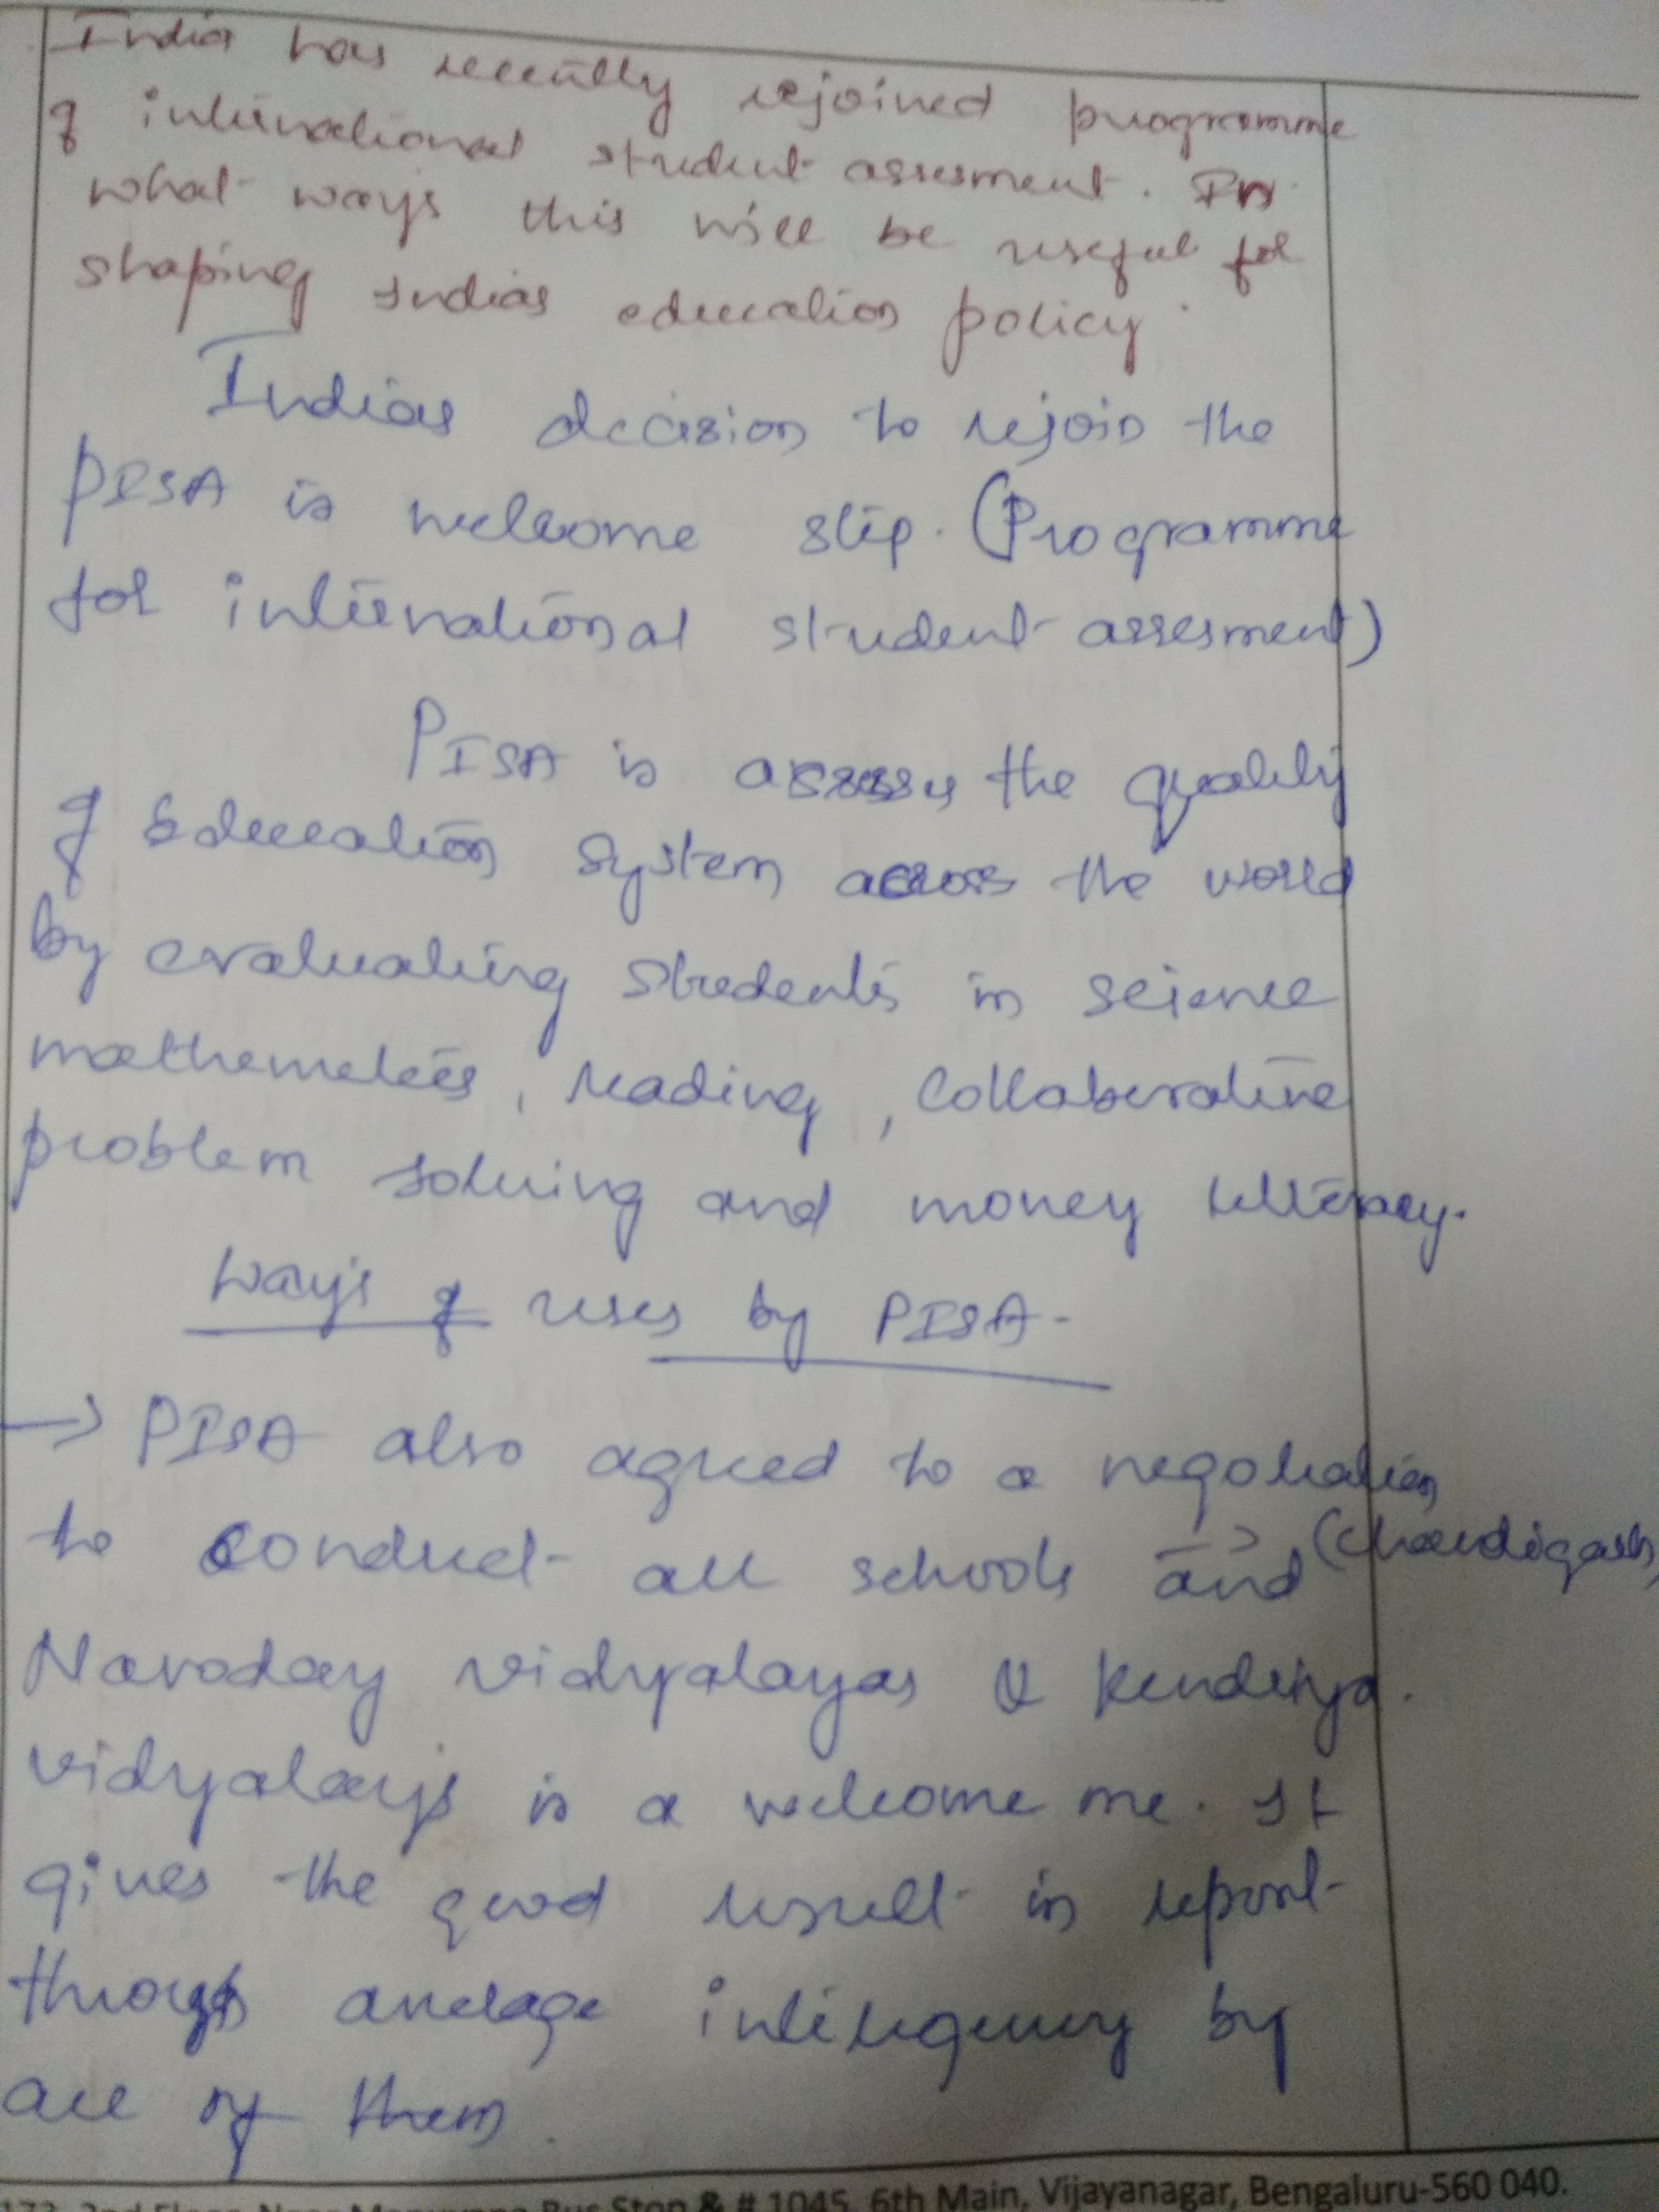 India has recently rejoined programme
of international student assesment. In
what ways this will be useful for
shaping Indias education policy.
Indias decision to rejoin the
PISA is welcome step. (Programme
for international student assesment)
PISA is assess the quality
of Education system across the world
by evaluating students in science
mathemetics, reading, collaborative
problem solving and money
Ways of uses by PISA-
→ PISA also agreed to a negotiation
to conduct all schools and (Chandigarh,
Navoday vidyalayas & kendriya.
vidyalays is a welcome me. It
gives the good result in report
through by
all of them.
2nd Floor, Near Bus Stop & # 1045, 6th Main, Vijayanagar, Bengaluru-560 040.